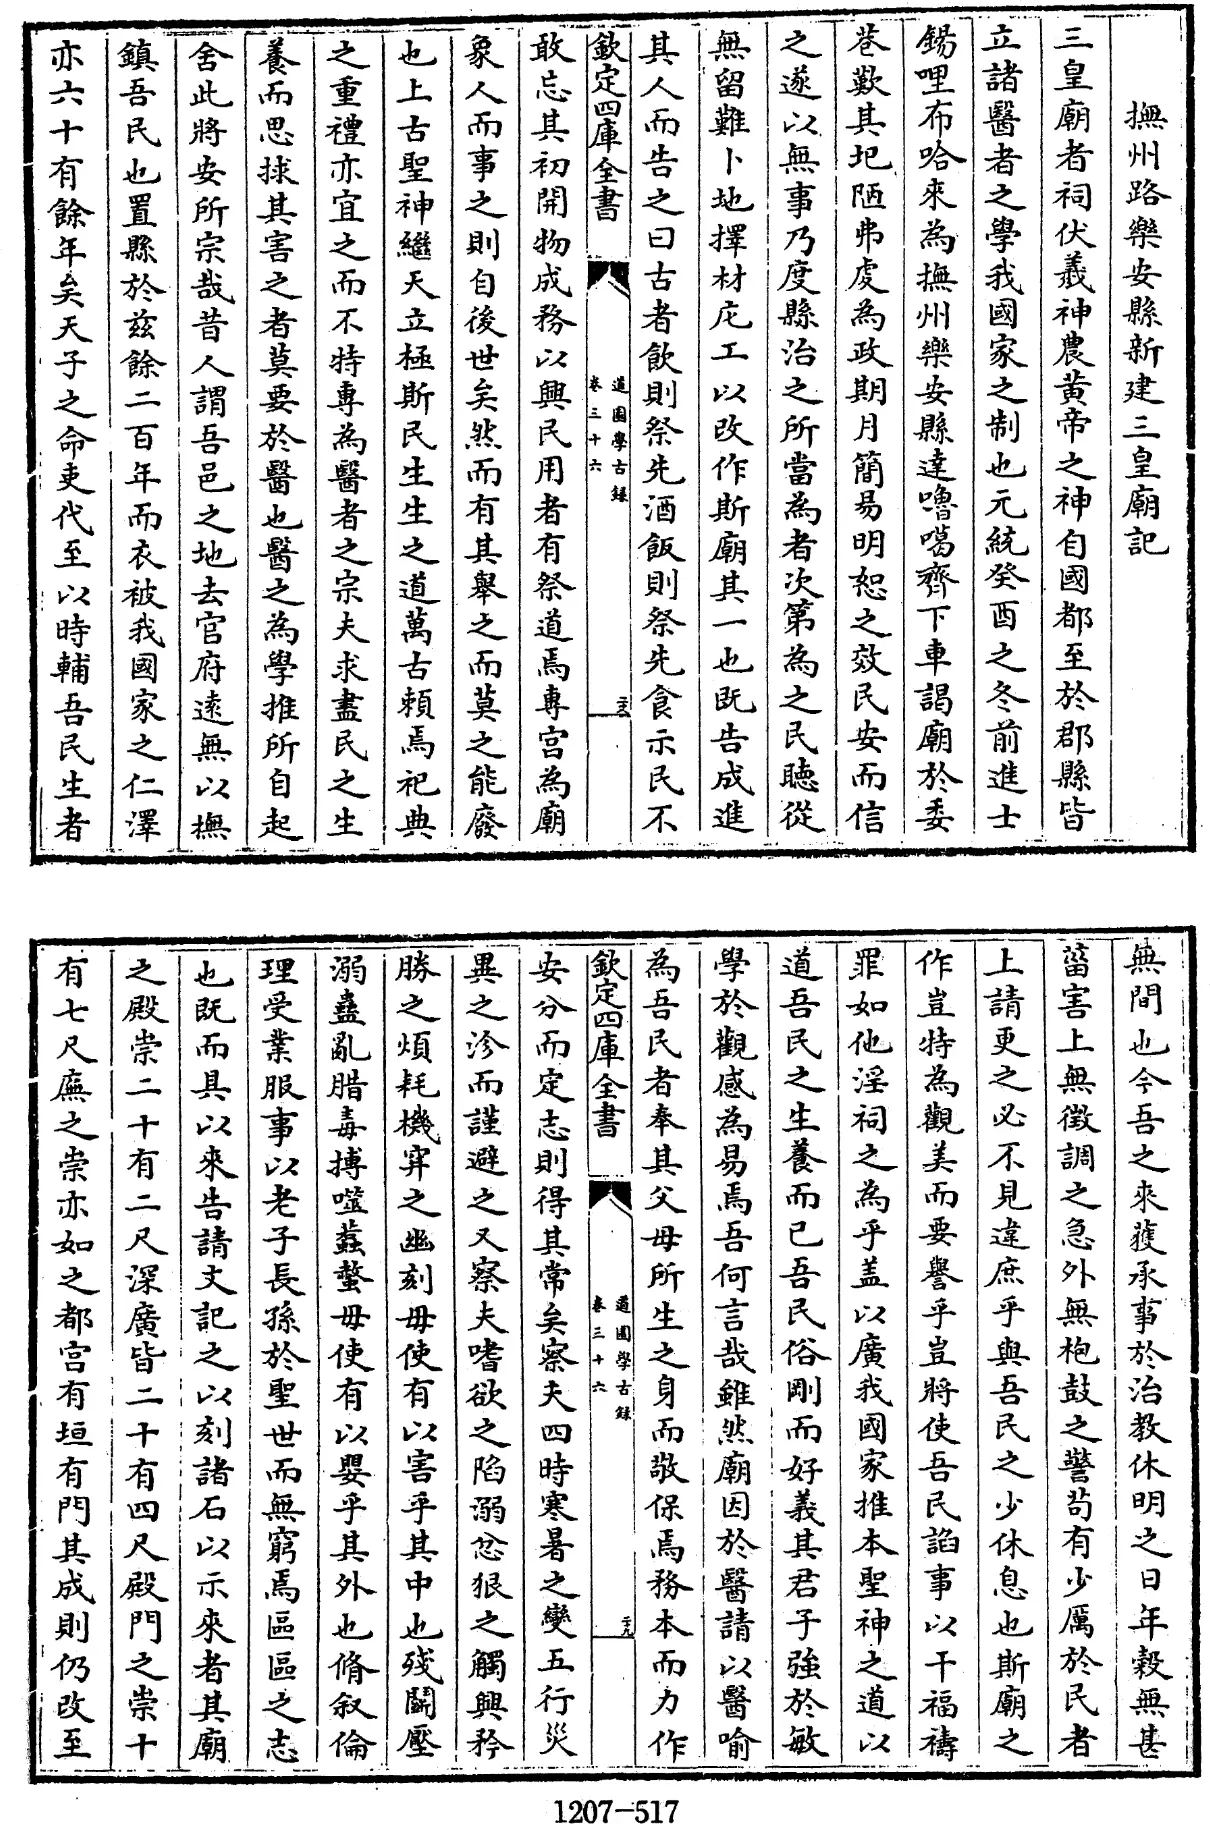 撫州路樂安縣新建三皇廟記
三皇廟者祠伏羲神農黃帝之神自國都至於郡縣皆
立諸醫者之學我國家之制也元統癸酉之冬前進士
錫哩布哈來為撫州樂安縣達嚕噶齊下車謁廟於委
巷歎其圮陋弗虔為政期月簡易明恕之效民安而信
之遂以無事乃度縣治之所當為者次第為之民聽從
無留難卜地擇材庀工以改作斯廟其一也既告成進
其人而告之曰古者飲則祭先酒飯則祭先食示民不
欽定四庫全書
道園學古録
卷三十六
二十八
敢忘其初開物成務以興民用者有祭道焉專宮為廟
象人而事之則自後世矣然而有其舉之而莫之能廢
也上古聖神繼天立極斯民生生之道萬古賴焉祀典
之重禮亦宜之而不特專為醫者之宗夫求盡民之生
養而思捄其害之者莫要於醫也醫之為學推所自起
舍此將安所宗哉昔人謂吾邑之地去官府逺無以撫
鎮吾民也置縣於兹餘二百年而衣被我國家之仁澤
亦六十有餘年矣天子之命吏代至以時輔吾民生者
無間也今吾之來獲承事於治教休明之日年穀無甚
菑害上無徵調之急外無枹鼓之警茍有少厲於民者
上請更之必不見違庶乎與吾民之少休息也斯廟之
作豈特為觀美而要譽乎豈將使吾民諂事以干福禱
罪如他淫祠之為乎盖以廣我國家推本聖神之道以
道吾民之生養而已吾民俗剛而好義其君子強於敏
學於觀感為易焉吾何言哉雖然廟因於醫請以醫喻
為吾民者奉其父母所生之身而敬保焉務本而力作
欽定四庫全書
道園學古録
卷三十六
二十九
安分而定志則得其常矣察夫四時寒暑之變五行災
異之沴而謹避之又察夫嗜欲之陷溺忿狠之觸興矜
勝之煩耗機穽之幽刻毋使有以害乎其中也殘鬬壓
溺蠱亂腊毒搏噬蠚螫毋使有以嬰乎其外也脩叙倫
理受業服事以老子長孫於聖世而無窮焉區區之志
也既而具以來告請文記之以刻諸石以示來者其廟
之殿崇二十有二尺深廣皆二十有四尺殿門之崇十
有七尺廡之崇亦如之都宮有垣有門其成則仍改至
1207-517